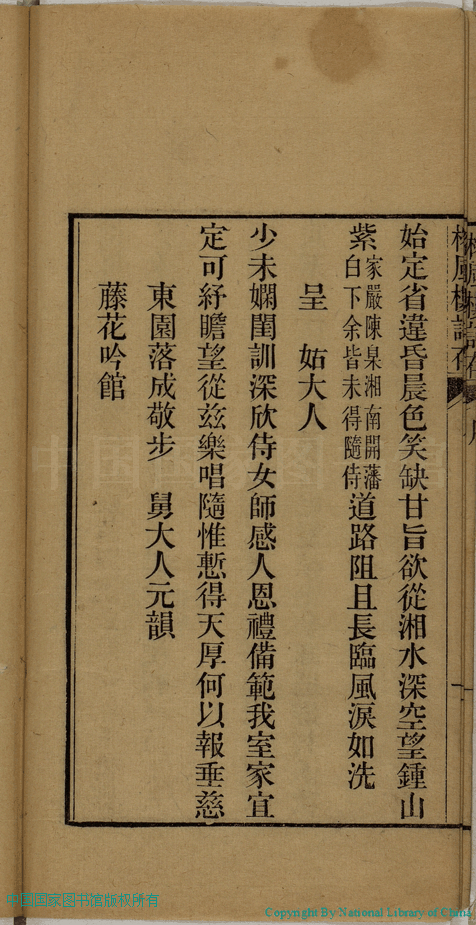 始定省違昏晨色笑缺甘旨欲從湘水深空望鍾山
紫家嚴陳臬湘南開藩白下余皆未得隨侍道路阻且長臨風淚如洗
呈　姑大人
少未嫻閨訓深欣侍女師感人恩禮備範我室家宜
定可紓瞻望從兹樂唱隨惟慙得天厚何以報垂慈
東園落成敬步　舅大人元韻
藤花吟館
中国国家图书馆版权所有
Copyright By National Library of China